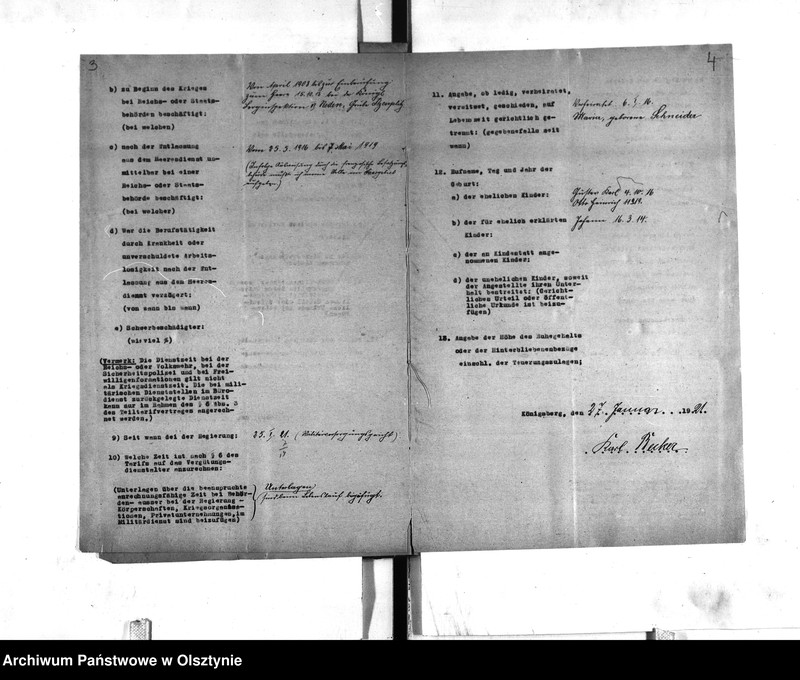 3
b) zu Beginn des Krieges
bei Reichs- oder Staats-
behörden beschäftigt:
(bei welchen)
Vom April 1903 bis zur Einberufung
zum Heer
c) nach der Entlassung
aus dem Heeresdienst un-
mittelbar bei einer
Reichs- oder Staats-
behörde beschäftigt:
(bei welcher)
Vom 25.3. 1916 bis 7 Mai 1919
d) War die Berufstätigkeit
durch Krankheit oder
unverschuldete Arbeits-
losigkeit nach der Ent-
lassung aus dem Heeres-
dienst verzögert:
(von wann bis wann)
e) Schwerbeschädigter:
(wieviel %)
(Vermerk: Die Dienstzeit bei der
Reichs- oder Volkswehr, bei der
Sicherheitspolizei und bei Frei-
willigenformationen gilt nicht
als Kriegsdienstzeit. Die bei mili-
tärischen Dienststellen im Büro-
dienst zurückgelegte Dienstzeit
kann nur im Rahmen des § 6 Abs. 3
des Teiltarifvertrages angerech-
net werden.)
9) Seit wann bei der Regierung:
25. 1. 21. (Militärversorgungsgericht)
10) Welche Zeit ist nach § 6 des
Tarifs auf das Vergütungs-
dienstalter anzurechnen:
(Unterlagen über die beanspruchte
anrechnungsfähige Zeit bei Behör-
den- ausser bei der Regierung -
Körperschaften, Kriegsorganisa-
tionen, Privatunternehmungen, im
Militärdienst sind beizufügen)
Unterlagen
sind dem Lebenslauf beigefügt.
4
11. Angabe, ob ledig, verheiratet,
verwitwet, geschieden, auf
Lebenszeit gerichtlich ge-
trennt: (gegebenenfalls seit
wann)
Verheiratet 6. 1. 16.
Maria, geborene Schneider
12. Rufname, Tag und Jahr der
Geburt:
a) der ehelichen Kinder:
Gustav Karl 4. 10. 16
Otto Heinrich
b) der für ehelich erklärten
Kinder:
Johann 16. 3. 14.
c) der an Kindesstatt ange-
nommenen Kinder:
d) der unehelichen Kinder, soweit
der Angestellte ihren Unter-
halt bestreitet: (Gericht-
liches Urteil oder öffent-
liche Urkunde ist beizu-
fügen)
13. Angabe der Höhe des Ruhegehalts
oder der Hinterbliebenenbezüge
einschl. der Teuerungszulagen:
Königsberg, den 27. Januar 1921.
Karl
Archiwum Państwowe w Olsztynie